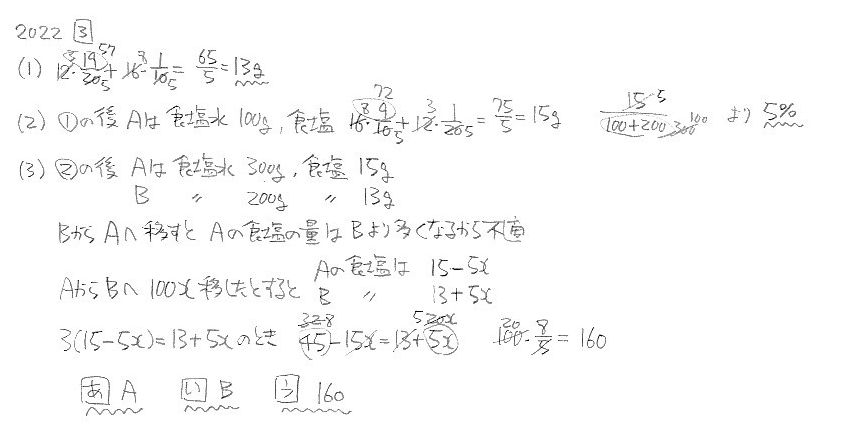 2022 3
(1) 12・19/20+16・1/10=65/5=13g
(2) ①の後 Aは食塩水 100g, 食塩 16・9/10+12・1/20=75/5=15g 15/100+200 より 5%
(3) ②の後 Aは食塩水 300g, 食塩 15g
B 〃 200g 〃 13g
BからAへ移すと Aの食塩の量はBより多くなるから不適
AからBへ 100x移したとすると Aの食塩は 15-5x
B 〃 13+5x
3(15-5x)=13+5xのとき 45-15x=13+5x 100・8/5=160
あ A い B う 160